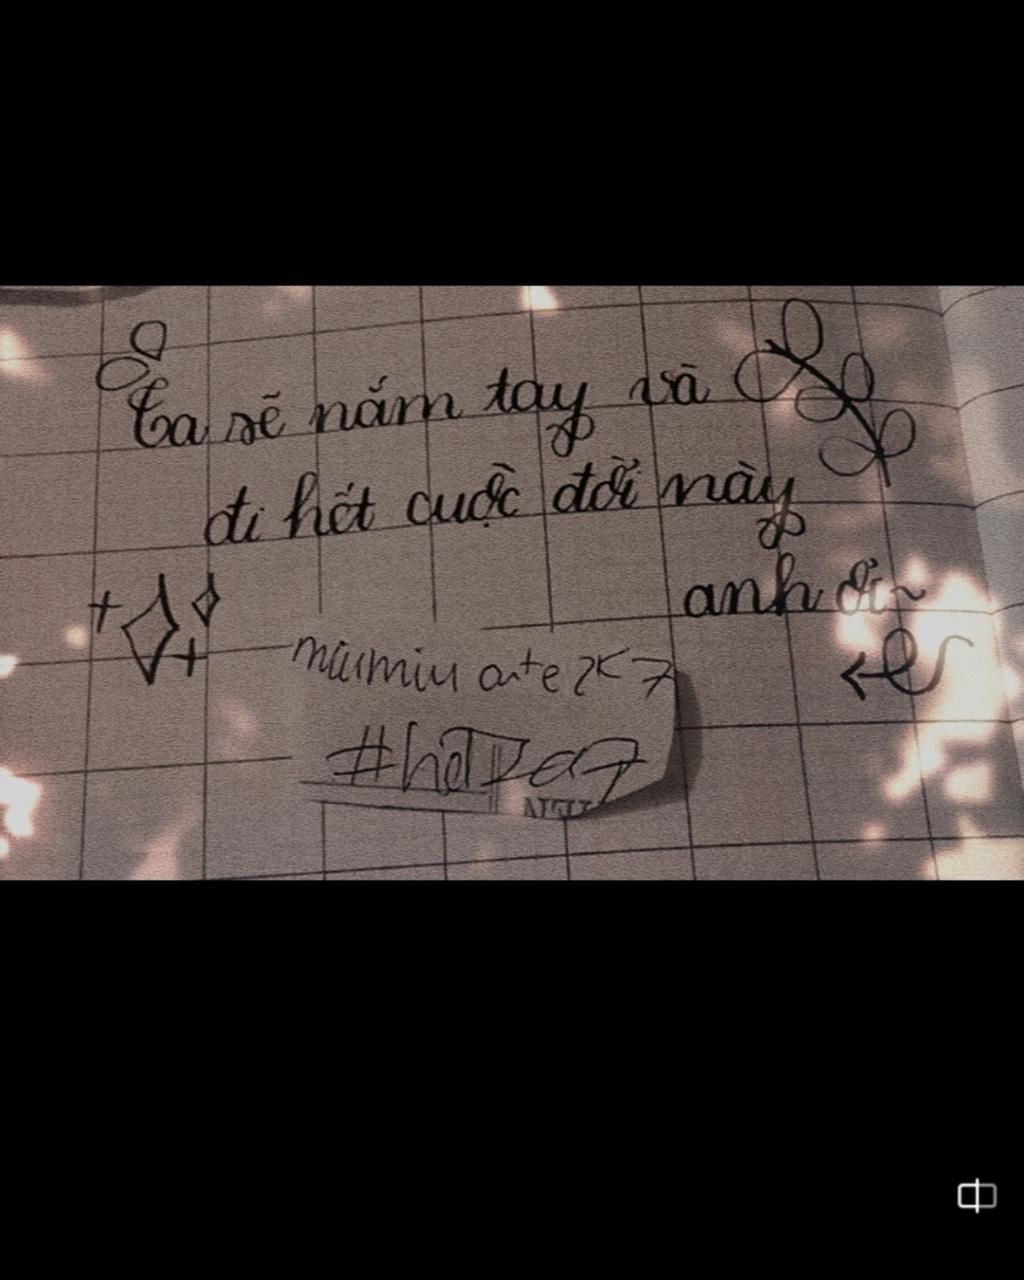 Ta sẽ nắm tay và
đi hết cuộc đời này
anh ơi~
miumiu ante 2K7